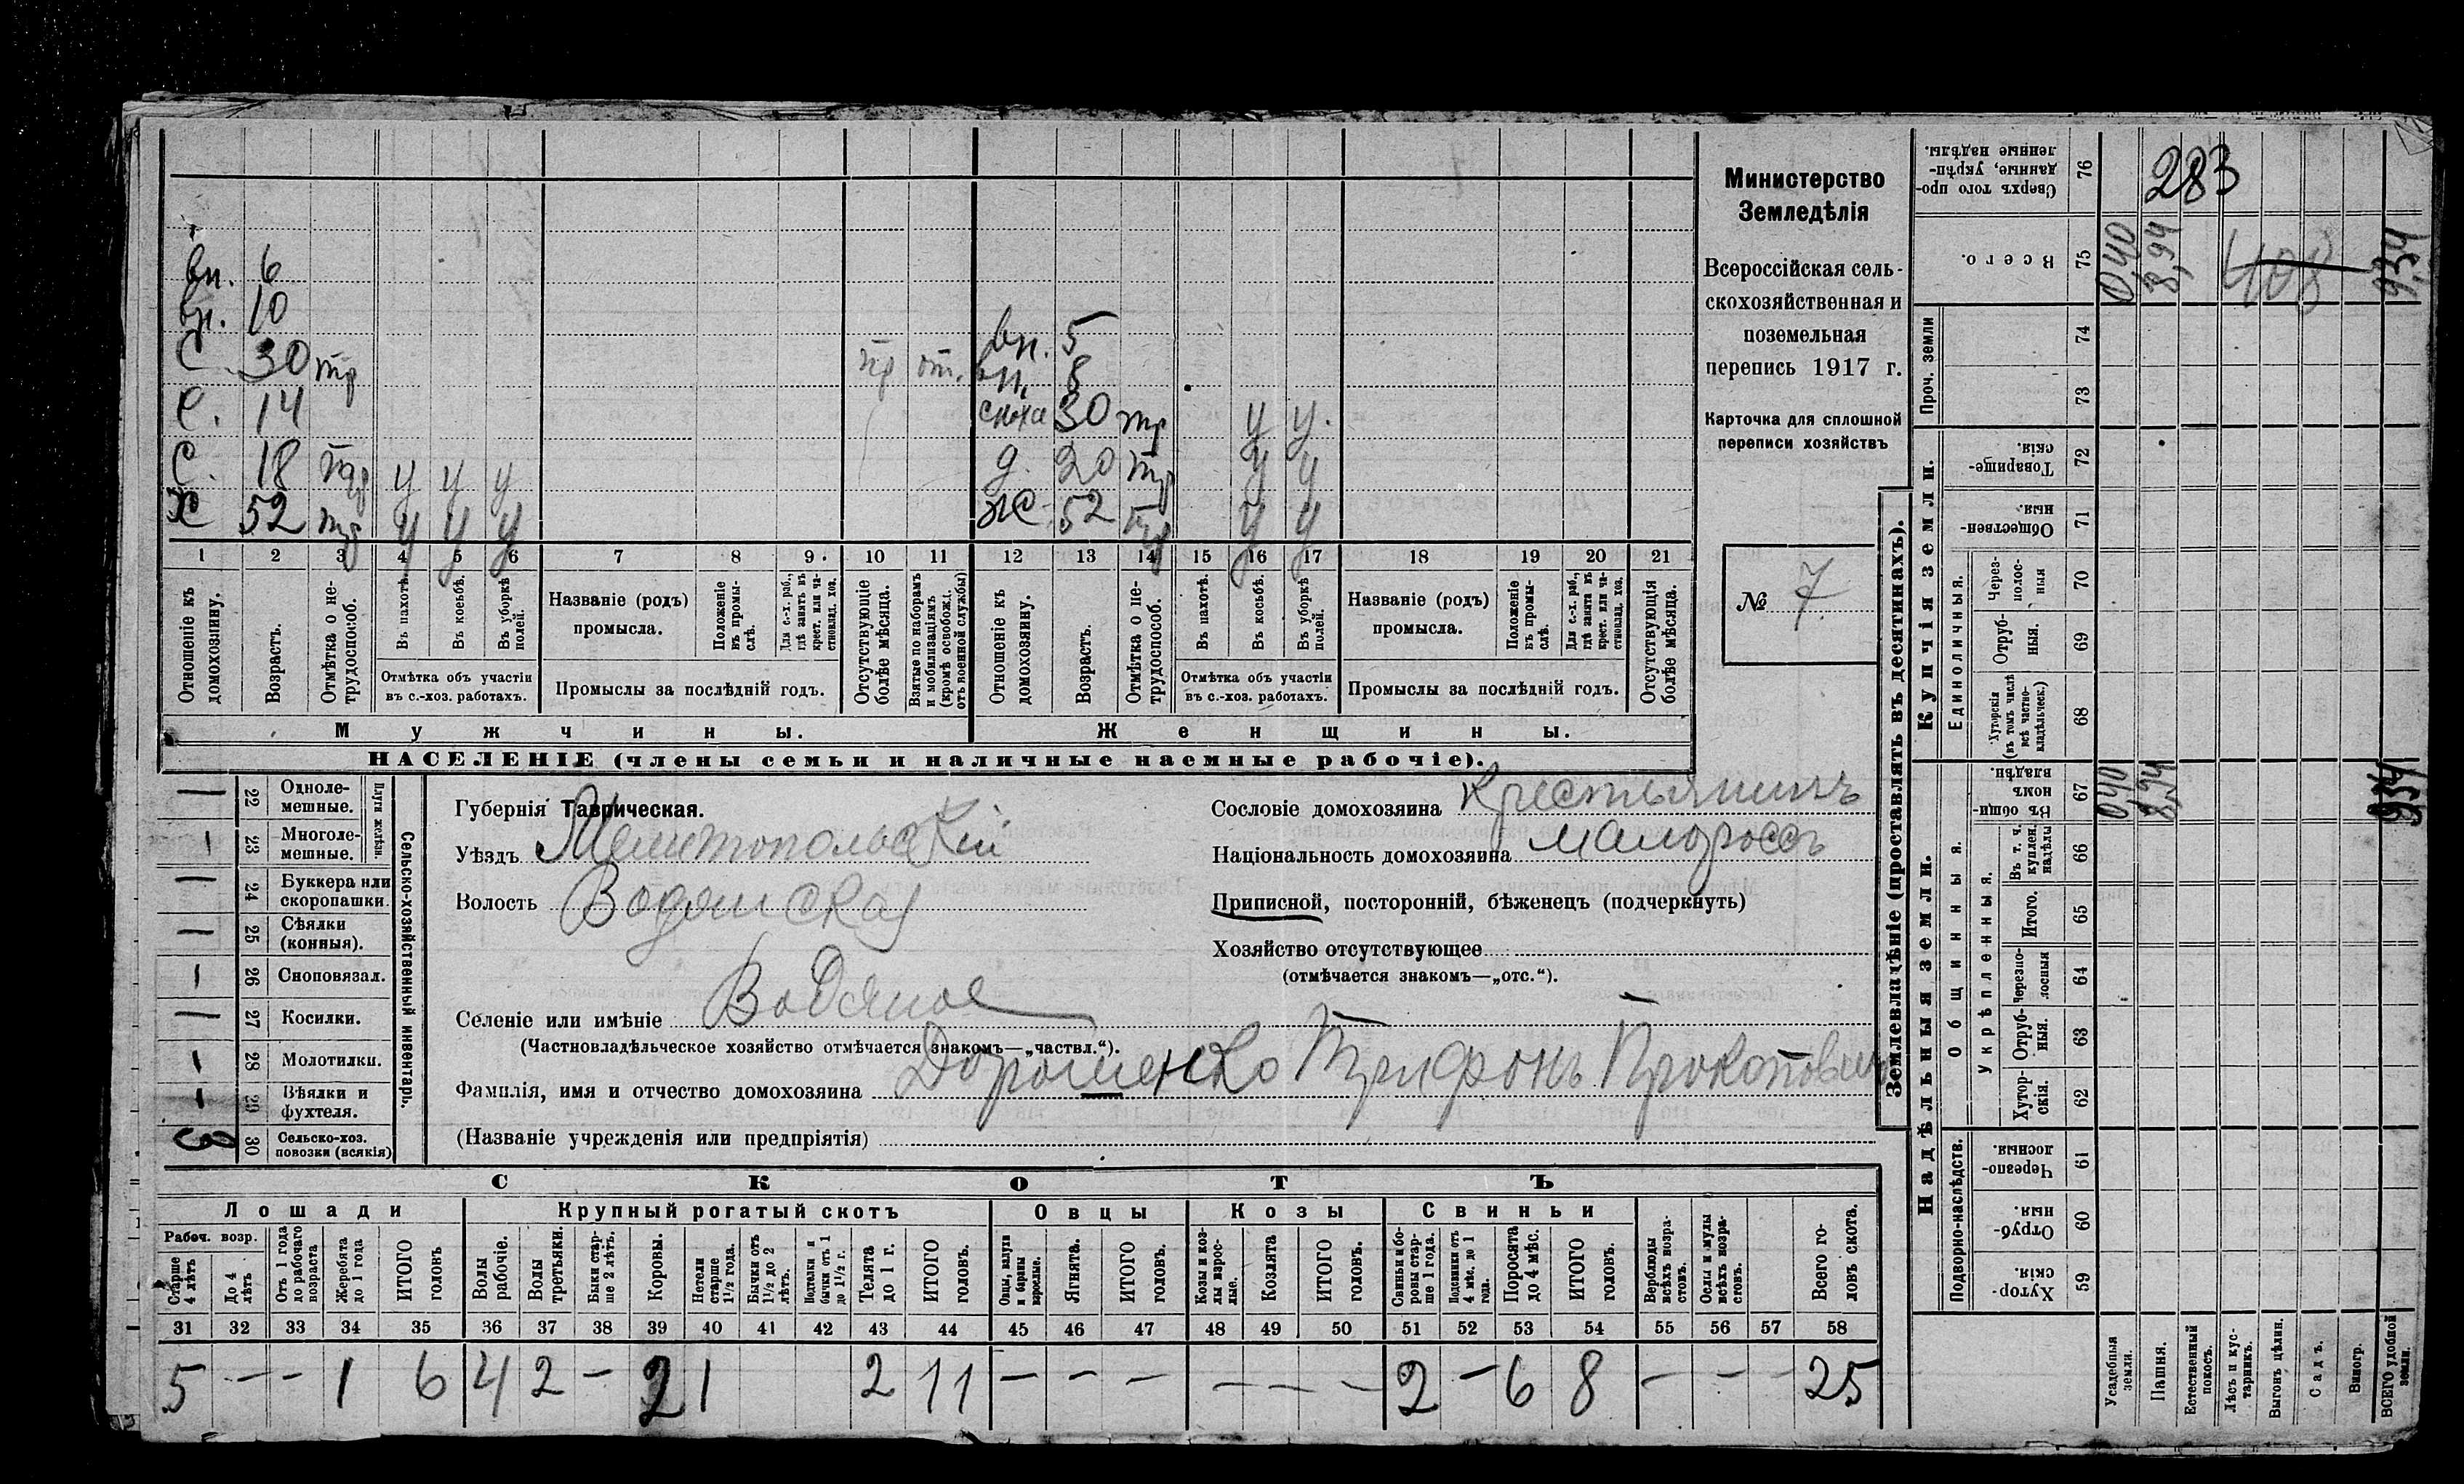 вн. 6
вн. 10
С 30 тр пр от.
С. 14
С. 18 тр у у у
Х 52 тр у у у
вн. 5
вн. 8
сноха 30 тр у у.
д. 20 тр у у
Ж 52 тр у у
1 2 3 4 5 6 7 8 9 10 11 12 13 14 15 16 17 18 19 20 21
Отношеніе къ домохозяину.
Возрастъ.
Отмѣтка о не-
трудоспособ.
Въ пахотѣ.
Въ косьбѣ.
Въ уборкѣ полей.
Отмѣтка объ участіи
въ с.-хоз. работахъ.
Названіе (родъ)
промысла.
Положеніе
въ промы-
слѣ.
Для с.-х. раб.,
гдѣ занятъ въ
крест. или ча-
стновлад. хоз.
Промыслы за послѣдній годъ.
Отсутствующіе
болѣе мѣсяца.
Взятые по наборамъ
и мобилизаціямъ
(кромѣ освобожд.
отъ военной службы)
Отношеніе къ
домохозяину.
Возрастъ.
Отмѣтка о не-
трудоспособ.
Въ пахотѣ.
Въ косьбѣ.
Въ уборкѣ
полей.
Отмѣтка объ участіи
въ с.-хоз. работахъ.
Названіе (родъ)
промысла.
Положеніе
въ промы-
слѣ.
Для с.-х. раб.,
гдѣ занята въ
крест. или ча-
стновлад. хоз.
Промыслы за послѣдній годъ.
Отсутствующія
болѣе мѣсяца.
Мужчины.
Женщины.
НАСЕЛЕНІЕ (члены семьи и наличные наемные рабочіе).
Министерство
Земледѣлія
Всероссійская сель-
скохозяйственная и
поземельная
перепись 1917 г.
Карточка для сплошной
переписи хозяйствъ
№ 7
— 22 Одноле-
мешные.
— 23 Многоле-
мешные.
Плуги желѣзн.
— 24 Буккера или
скоропашки.
— 25 Сѣялки
(конныя).
— 26 Сноповязал.
— 27 Косилки.
— 28 Молотилки.
— 29 Вѣялки и
фухтеля.
3 30 Сельско-хоз.
повозки (всякія)
Сельско-хозяйственный инвентарь.
Губернія Таврическая.
Уѣздъ Мелитопольскій
Волость Водянская
Селеніе или имѣніе Водяное
(Частновладѣльческое хозяйство отмѣчается знакомъ—„частвл.“).
Фамилія, имя и отчество домохозяина Дорошенко Трифонъ Прокопович
(Названіе учрежденія или предпріятія)
Сословіе домохозяина Крестьянинъ
Національность домохозяина малороссъ
Приписной, посторонній, бѣженецъ (подчеркнуть)
Хозяйство отсутствующее
(отмѣчается знакомъ—„отс.“).
СКОТЪ
Лошади
Крупный рогатый скотъ
Овцы
Козы
Свиньи
Рабоч. возр.
Старше
4 лѣтъ
До 4
лѣтъ
Отъ 1 года
до рабочаго
возраста
Жеребята
до 1 года
ИТОГО
головъ
Волы
рабочіе.
Волы
третьяки.
Быки стар-
ше 2 лѣтъ.
Коровы.
Нетели
старше
1½ года.
Бычки отъ
1½ до 2
лѣтъ.
Подтелки и
бычки отъ 1
до 1½ г.
Телята
до 1 г.
ИТОГО
головъ.
Овцы, валухи
и бараны
взрослые.
Ягнята.
ИТОГО
головъ.
Козы и коз-
лы взрос-
лые.
Козлята
ИТОГО
головъ.
Свиньи и бо-
ровы стар-
ше 1 года.
Подсвинки отъ
4 мѣс. до 1
года.
Поросята
до 4 мѣс.
ИТОГО
головъ.
Верблюды
всѣхъ возра-
стовъ.
Ослы и мулы
всѣхъ возра-
стовъ.
Всего го-
ловъ скота.
31 32 33 34 35 36 37 38 39 40 41 42 43 44 45 46 47 48 49 50 51 52 53 54 55 56 57 58
5 — — 1 6 4 2 — 2 1 2 11 — — — — — — 2 — 6 8 — — — 25
Землевладѣніе (проставлять въ десятинахъ).
Надѣльныя земли.
Купчія земли.
Проч. земли
Подворно-наслѣдств.
Общинныя.
Укрѣпленныя.
Единоличныя.
Сверхъ того про-
данные, укрѣп-
ленные надѣлы.
76
283
Всего.
75
0,40
8,94
408
9,34
74
73
Товарище-
скія.
72
Обществен-
ныя.
71
Через-
полос-
ныя
70
Отруб-
ныя.
69
Хуторскія
(въ томъ числѣ
всѣ частно-
владѣльческ.)
68
Въ общин-
номъ
владѣн.
67
0,40
8,94
9,34
Въ т. ч.
куплен.
надѣлы
66
Итого.
65
Черезпо-
лосныя
64
Отруб-
ныя.
63
Хутор-
скія.
62
Черезпо-
лосныя.
61
Отруб-
ныя.
60
Хутор-
скія.
59
Усадебныя
земли.
Пашня.
Естественный
покосъ.
Лѣсъ и кус-
тарникъ.
Выгонъ цѣлин.
Садъ.
Виногр.
ВСЕГО удобной
земли.